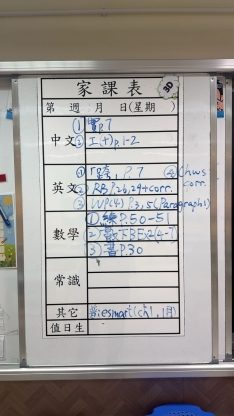 家課表
3D
第 週 月 日(星期 )
中文
① 買 p.7
② 工(十) p.1-2
英文
P.7
④ hws corr.
② RB P.26,29+corr.
③ WP(4) P.3,5(Paragraph1)
數學
① 練 P.50-51
2) 數下B Ex2(4-7)
3) 書 P.30
常識
其它
esmart(ch1, 1月)
值日生